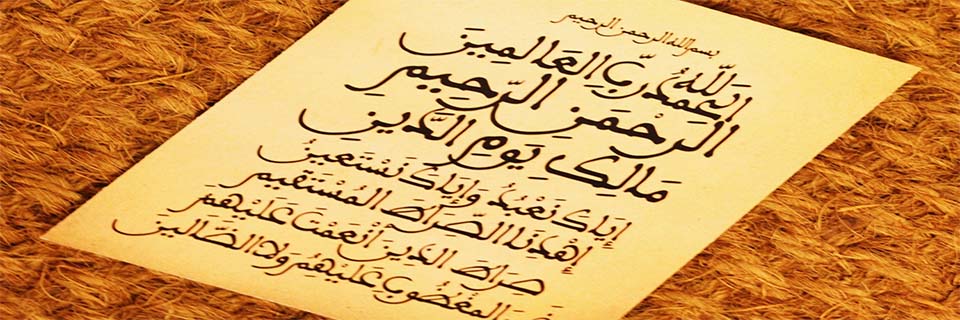 بسم الله الرحمن الرحيم
الحمد لله رب العالمين
الرَّحْمَنِ الرَّحِيمِ
مَالِكِ يَوْمِ الدِّينِ
إِيَّاكَ نَعْبُدُ وَإِيَّاكَ نَسْتَعِينُ
إِهْدِنَا الصِّرَاطَ الْمُسْتَقِيمَ
صِرَاطَ الَّذِينَ أَنْعَمْتَ عَلَيْهِمْ
الْمَغْضُوبِ عَلَيْهِمْ وَلَا الضَّالِّينَ